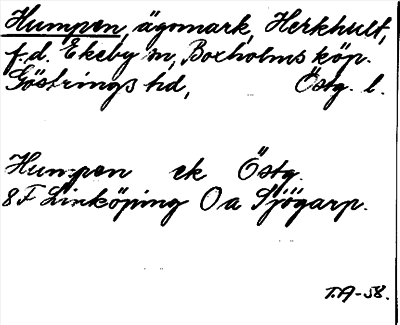 Humpen, ägomark, Herkhult,
f.d. Ekeby sn, Boxholms köp.
Göstrings hd, Östg. l.
Humpen ek Östg.
8F Linköping Oa Sjögarp.
T.A-58.